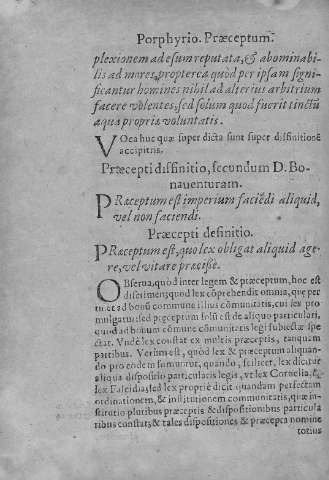 Porphyrio. Præceptum.
plexionem ad esum reputata, & abominabi-
lis ad mores, propterea quòd per ipsam signi-
ficantur homines nihil ad alterius arbitrium
facere volentes, sed solum quod fuerit tinctũ
aqua propria voluntatis.
VOca huc quæ super dicta sunt super diffinitione
accipitris.
Præcepti diffinitio, secundum D. Bo-
nauenturam.
PRæceptum est imperium faciẽdi aliquid,
vel non faciendi.
Præcepti definitio.
PRæceptum est, quo lex obligat aliquid age-
re, vel vitare præcisè.
OBserua, quòd inter legem & præceptum, hoc est
discrimen; quod lex cõprehendit omnia, quæ per
tinet ad bonũ commune illius cõmunitatis, cui lex pro
mulgatur; sed præceptum solũ est de aliquo particulari,
quod ad bonum cõmune cõmunitatis legi subiectæ spe
ctat. Vnde lex constat ex multis præceptis, tanquam
partibus. Verùm est, quòd lex & præceptum aliquan-
do pro eodem sumuntur, quando, scilicet, lex dicitur
aliqua dispositio particularis legis, vt lex Cornelia, &
lex Falcidia; sed lex propriè dicit quandam perfectam
ordinationem, & institutionem communitatis, quæ in-
stitutio pluribus præceptis & dispositionibus particula
ribus constat; & tales dispositiones & præcepta nomine
totius